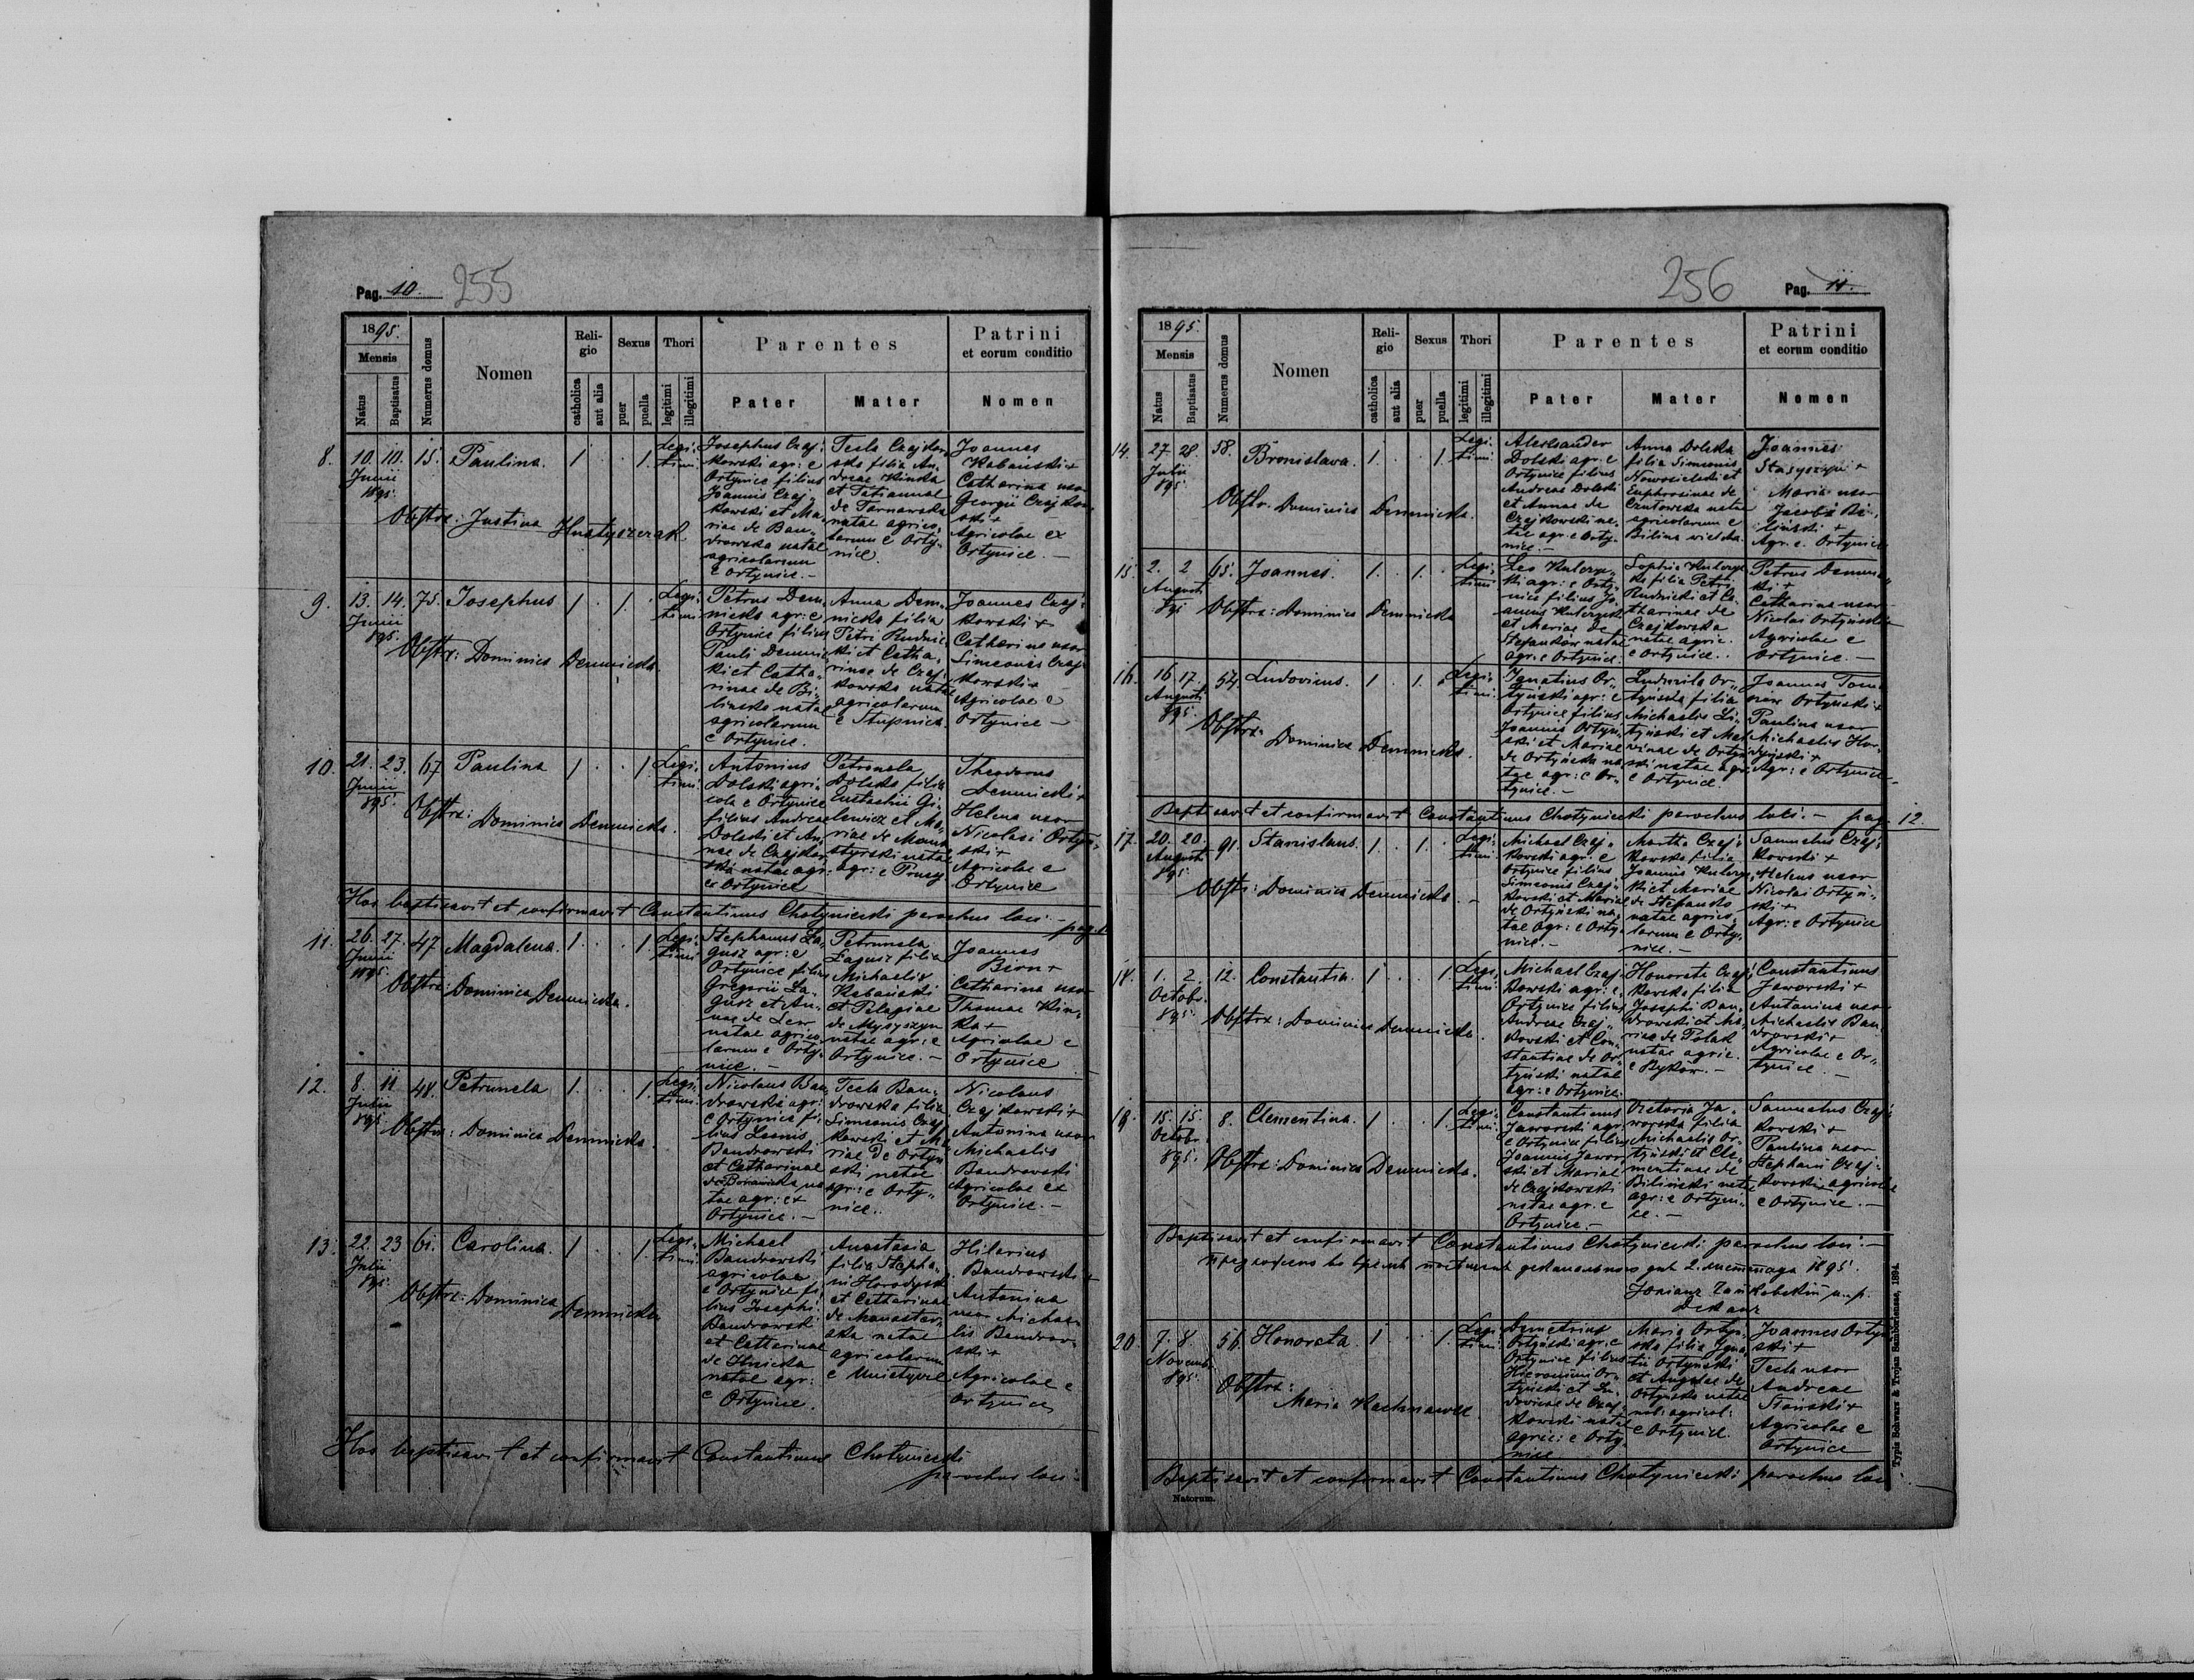 Pag. 10. 255
1895.
Mensis
Natus
Baptisatus
Numerus domus
Nomen
Religio
catholica
aut alia
Sexus
puer
puella
Thori
legitimi
illegitimi
Parentes
Pater
Mater
Patrini
et eorum conditio
Nomen
8. 10. 10. 15. Paulina. 1 . . 1. Legi-
timi
Junii
1895.
Obstrx: Justina
Josephus Czaj-
kowski agr: e
Ortynice filius
Joannis Czaj-
kowski et Ma-
riae de Ban-
drowska natae
agricolarum
e Ortynice. -
Tecla Czajkow-
ska filia An-
dreae Kinska
et Tatiannae
de Tarnawska
natae agrico-
larum e Orty-
nice.
Joannes
Kabański +
Catharina uxor
Georgii Czajkow-
ski +
Agricolae ex
Ortynice. -
9. 13. 14. 75. Josephus 1 . 1. . Legi-
timi
Junii
895.
Obstrx: Dominica Demnicka.
Petrus Dem-
nicki agr: e
Ortynice filius
Pauli Demnic-
ki et Catha-
rinae de Bi-
linska natae
agricolarum
e Ortynice.
Anna Dem-
nicka filia
Petri Rudnic-
ki et Catha-
rinae de Czaj-
kowska natae
agricolarum
e Stupnica.
Joannes Czaj-
kowski +
Catharina uxor
Simeonis Czaj-
kowski +
Agricolae e
Ortynice -
10. 21. 23. 67 Paulina 1 . . 1 Legi-
timi
Junii
895.
Obstrx: Dominica Demnicka.
Antonius
Dolski agri-
cola e Ortynice
filius Andreae
Dolski et An-
nae de Czajkow-
ska natae agr:
ex Ortynice
Petronela
Dolska filia
Eustachii Gi-
lewicz et Ma-
riae de Mona-
styrski natae
agr: e Prusy
Theodorus
Demnicki +
Helena uxor
Nicolai Ortyń-
ski +
Agricolae e
Ortynice
Hos baptisavit et confirmavit Constantinus Chotyniecki parochus loci. -
11. 26. 27. 47 Magdalena. 1 . . 1 Legi-
timi
Junii
1895.
Obstrx: Dominica Demnicka.
Stephanus Ła-
gusz agr: e
Ortynice filius
Gregorii Ła-
gusz et An-
nae de Lew
natae agrico-
larum e Orty-
nice. -
Petrunela
Łagusz filia
Michaelis
Kabański
et Pelagiae
de Mysyszyn
natae agr: e
Ortynice. -
Joannes
Bion +
Catharina uxor
Thomae Kin-
ka +
Agricolae e
Ortynice
12. 8. 11 48. Petrunela 1. . . 1. Legi-
timi
Julii
895
Obstrx: Dominica Demnicka.
Nicolaus Ban-
drowski agr:
e Ortynice fi-
lius Leonis
Bandrowski
et Catharinae
tae agr: ex
Ortynice. -
Tecla Ban-
drowska filia
Simeonis Czaj-
kowski et Ma-
riae de Ortyń-
ski natae
agr: e Orty-
nice.
Nicolaus
Czajkowski +
Antonina uxor
Michaelis
Bandrowski
Agricolae ex
Ortynice. -
13. 22. 23 61. Carolina. 1 . . 1. Legi-
timi
Julii
895.
Obstrx: Dominica Demnicka
Michael
Bandrowski
agricola
e Ortynice fi-
lius Josephi
Bandrowski
et Catharinae
natae agr:
e Ortynice.
Anastasia
filia Stepha-
ni Horodyski
et Catharinae
de Monaster-
ska natae
agricolarum
Hilarius
Bandrowski +
Antonina
uxor Michae-
lis Bandrow-
ski +
Agricolae e
Ortynice
Hos baptisavit et confirmavit Constantinus Chotyniecki
parochus loci.
256 Pag. 11.
1895.
Mensis
Natus
Baptisatus
Numerus domus
Nomen
Religio
catholica
aut alia
Sexus
puer
puella
Thori
legitimi
illegitimi
Parentes
Pater
Mater
Patrini
et eorum conditio
Nomen
14. 27. 28. 58. Bronislava. 1. . . 1. Legi-
timi
Julii
895.
Obstr. Dominica Demnicka.
Aleksander
Dolski agr: e
Ortynice filius
Andreae Dolski
et Annae de
Czajkowski na-
tae agr: e Orty-
nice. -
Anna Dolska
filia Simeonis
Nowosielski et
Euphrosinae de
natae
agricolarum e
Bilina wielka.
Joannes
Stasyszyn +
Maria uxor
Jacobi Bi-
liński +
Agr: e Ortynice
15. 2. 2 65. Joannes. 1. . 1. . Legi-
timi
Augusti
895
Obstrx: Dominica Demnicka
Leo Kulczyc-
ki agr: e Orty-
nice filius Jo-
annis Kulczycki
et Mariae de
Stefanków natae
agr: e Ortynice.
Sophia Kulczyc-
ka filia Petri
Rudnicki et Ca-
tharinae de
Czajkowska
natae agric.
e Ortynice.
Petrus Demnic-
ki +
Catharina uxor
Nicolai Ortyński
Agricolae e
Ortynice. -
16. 16. 17. 54. Ludovicus. 1 . 1. . Legi-
timi
Augusti
895.
Obstrx: Dominica Demnicka.
Ignatius Or-
tyński agr: e
Ortynice filius
Joannis Ortyń-
ski et Mariae
de Ortyńska na-
tae agr: e Or-
tynice. -
Ludmila Or-
tyńska filia
Michaelis Li-
tyński et Mal-
vinae de Ortyń-
ski natae agr:
e Ortynice.
Joannes
Ortyński +
Paulina uxor
Michaelis Hor-
dyński +
Agr: e Ortynice
Baptisavit et confirmavit Constantinus Chotyniecki parochus loci. - pag. 12.
17. 20. 20. 91. Stanislaus. 1. . 1. . Legi-
timi
Augusti
895.
Obstr: Dominica Demnicka. -
Michael Czaj-
kowski agr: e
Ortynice filius
Simeonis Czaj-
kowski et Mariae
de Ortyński na-
tae agr: e Orty-
nice. -
Martha Czaj-
kowska filia
Joannis Kulczyc-
ki et Mariae
de Stefanko
natae agrico-
larum e Orty-
nice. -
Samuelus Czaj-
kowski +
Helena uxor
Nicolai Ortyń-
ski +
Agr: e Ortynice
18. 1. 2. 12. Constantia. 1 . . 1. Legi-
timi
Octobr.
895.
Obstrx: Dominica Demnicka.
Michael Czaj-
kowski agr: e
Ortynice filius
Andreae Czaj-
kowski et Con-
stantiae de Or-
tyński natae
agr: e Ortynice.
Honorata Czaj-
kowska filia
Josephi Ban-
drowski et Ma-
riae de Polak
natae agric.
e Bykow. -
Constantinus
Jaworski +
Antonina uxor
Michaelis Ban-
drowski +
Agricolae e Or-
tynice. -
19. 15. 15. 8. Clementina. 1 . . 1. Legi-
timi
Octobr.
895.
Obstrx: Dominica Demnicka.
Constantinus
Jaworski agr.
e Ortynice filius
Joannis Jawor-
ski et Mariae
de Czajkowski
natae agr. e
Ortynice. -
Victoria Ja-
worska filia
Michaelis Or-
tyński et Cle-
mentinae de
Biliński natae
agr: e Ortyni-
ce. -
Samuelus Czaj-
kowski +
Paulina uxor
Stephani Czaj-
kowski agricolae
e Ortynice. -
Baptisavit et confirmavit Constantinus Chotyniecki parochus loci. -
1895.
20. 7. 8. 56. Honorata. 1 . . 1. Legi-
timi
Novemb.
895.
Obstrx:
Maria
Dymetrius
Ortyński agr: e
Ortynice filius
Hieronimi Or-
tyński et Lu-
dovicae de Czaj-
kowski natae
agric: e Orty-
nice
Maria Ortyń-
ska filia Igna-
tii Ortyński
et Angelae de
Ortyńska natae
agricol:
e Ortynice.
Joannes Ortyń-
ski +
Tecla uxor
Andreae
Agricolae e
Ortynice
Baptisavit et confirmavit Constantinus Chotyniecki parochus loci
Natorum.
Typis Schwarz & Trojan Samboriense, 1894.